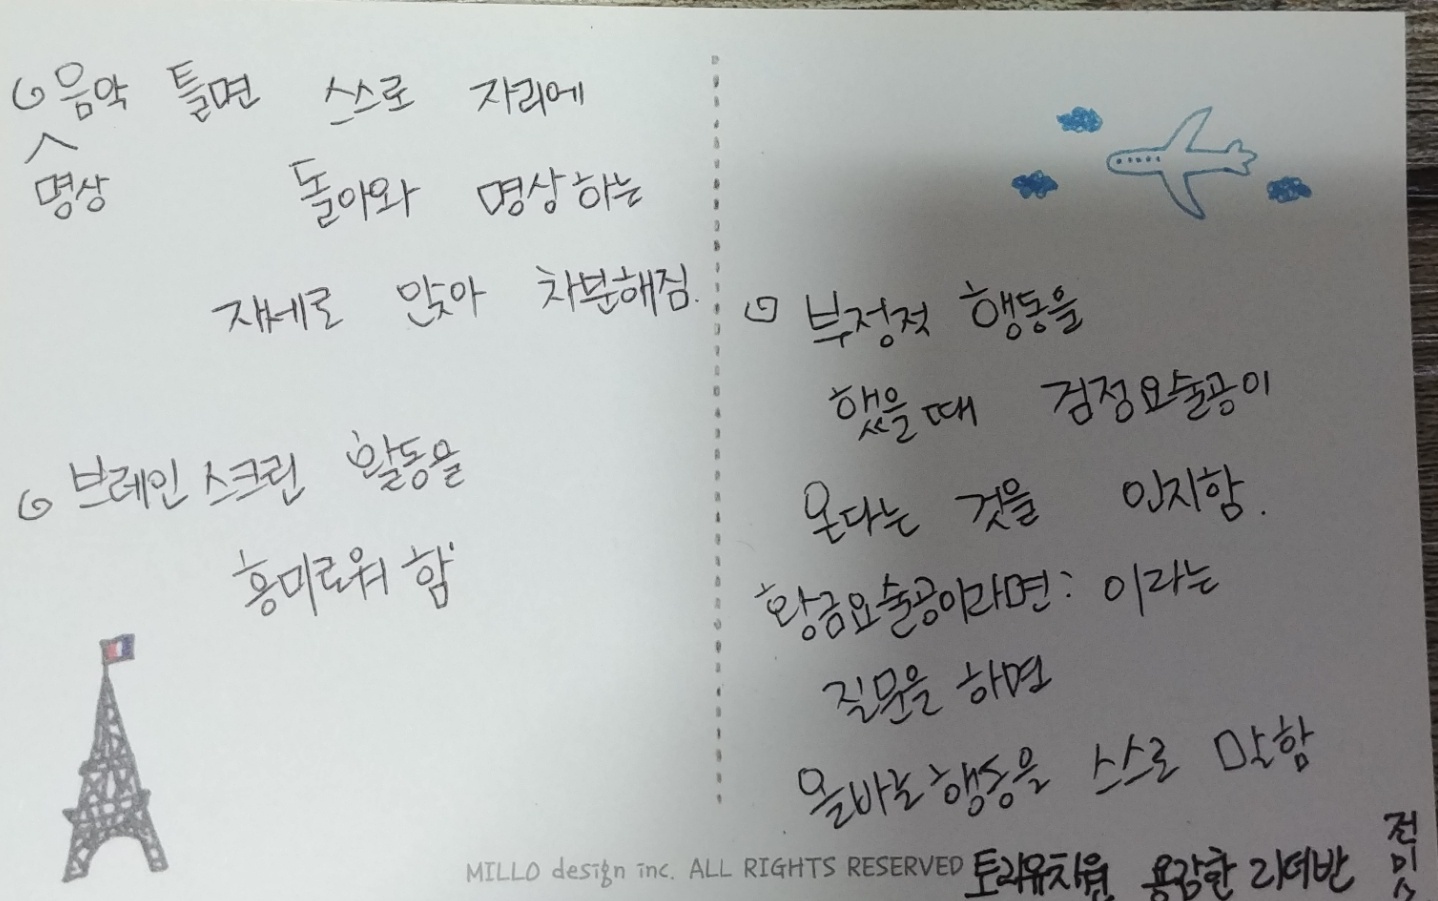 음악 틀면 스스로 자리에
명상
돌아와 명상하는
자세로 앉아 차분해짐.
브레인 스크린 활동을
흥미로워 함
부정적 행동을
했을때 검정요술공이
온다는 것을 인지함.
황금요술공이라면: 이라는
질문을 하면
올바른 행동을 스스로 말함
토리유치원 용감한 리더반
전미
MILLO design inc. ALL RIGHTS RESERVED